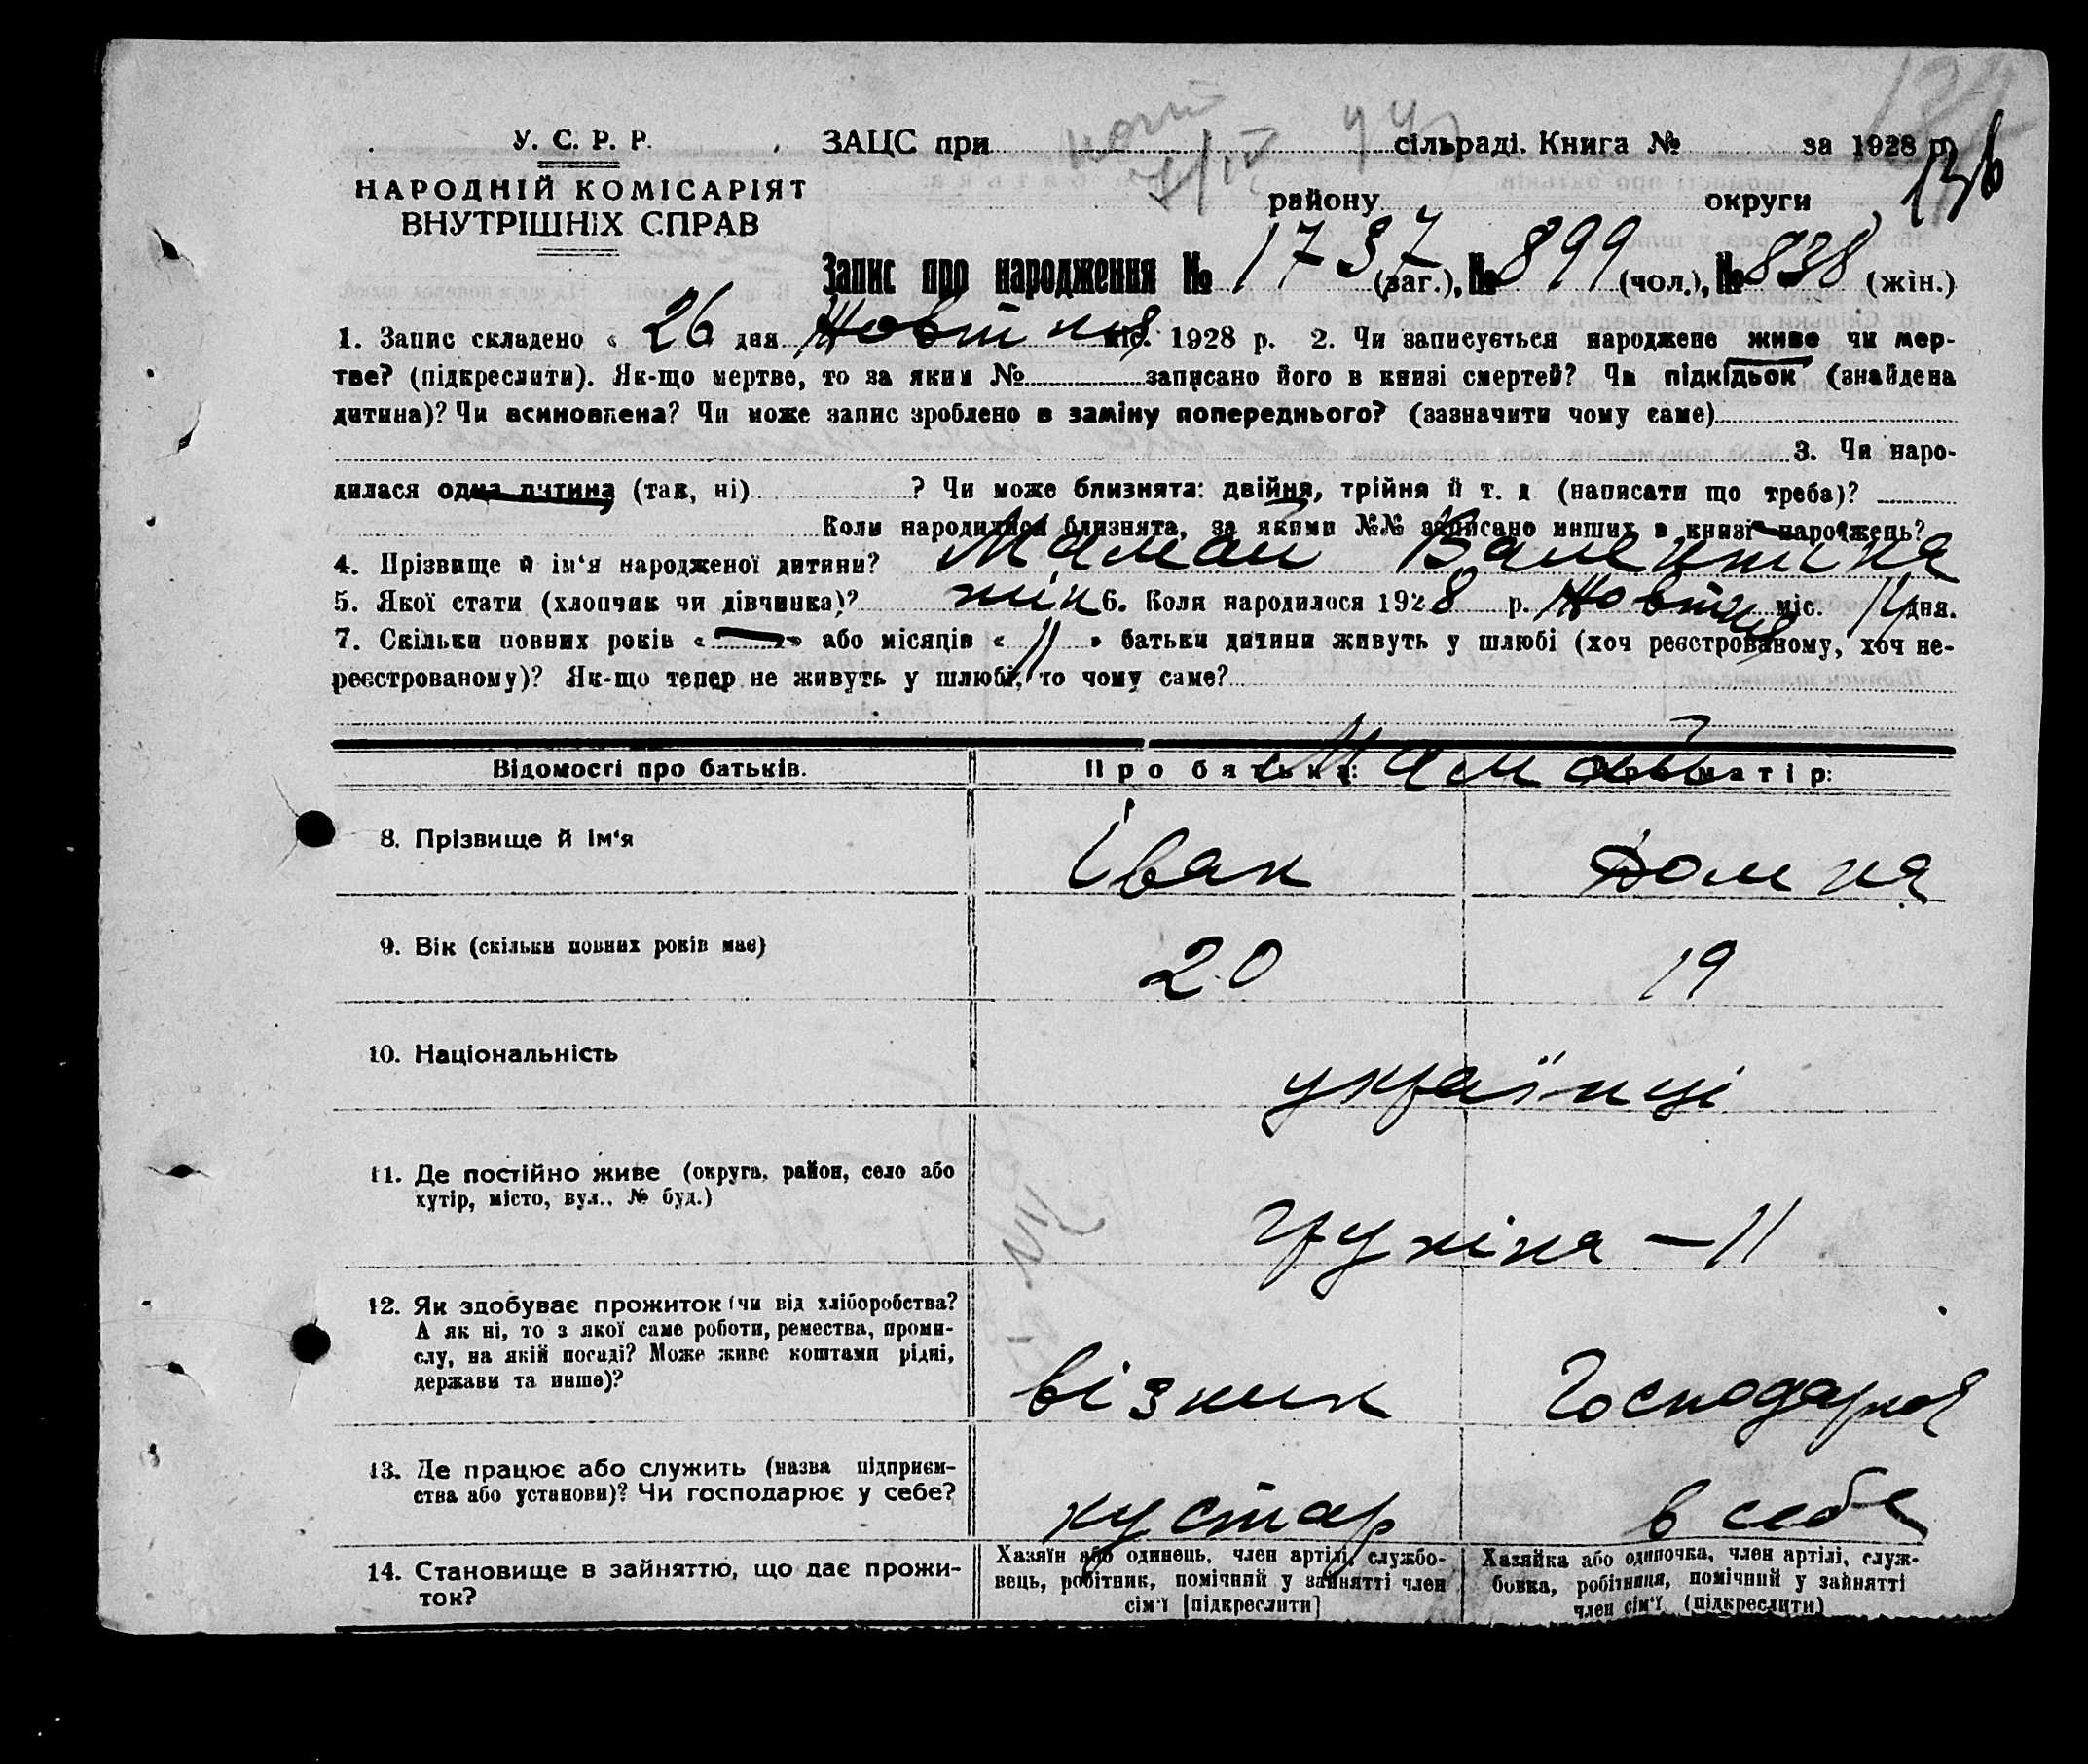 У. С. Р. Р.
НАРОДНІЙ КОМІСАРІЯТ
ВНУТРІШНІХ СПРАВ
ЗАЦС при сільраді. Книга № за 1928 р.
району округи
136
Запис про народження № 1737 (заг.), № 899 (чол.), № 838 (жін.)
1. Запис складено « 26 дня Жовтня міс. 1928 р. 2. Чи записується народжене живе чи мер-
тве? (підкреслити). Як-що мертве, то за яким № записано його в книзі смертей? Чи підкідьок (знайдена
дитина)? Чи всиновлена? Чи може запис зроблено в заміну попереднього? (зазначити чому саме)
3. Чи наро-
дилася одна дитина (так, ні) ? Чи може близнята: двійня, трійня й т. д (написати що треба)?
Коли народилися близнята, за якими №№ записано инших в книзі народжень?
4. Прізвище й ім'я народженої дитини? Мамай Валентина
5. Якої стати (хлопчик чи дівчинка)? жін 6. Коли народилося 1928 р. Жовтня міс. 14 дня.
7. Скільки повних років « — » або місяців « 11 » батьки дитини живуть у шлюбі (хоч реєстрованому, хоч не-
реєстрованому)? Як-що тепер не живуть у шлюбі, то чому саме?
Відомості про батьків. Про батька: Про матір:
Мамай
8. Прізвище й ім'я Іван Домна
9. Вік (скільки повних років має) 20 19
10. Національність українці
11. Де постійно живе (округа, район, село або
хутір, місто, вул., № буд.) — 11
12. Як здобуває прожиток (чи від хліборобства?
А як ні, то з якої саме роботи, ремества, проми-
слу, на якій посаді? Може живе коштами рідні,
держави та инше)? візник Господарює
13. Де працює або служить (назва підприєм-
ства або установи)? Чи господарює у себе? кустар в себе
14. Становище в зайняттю, що дає прожи-
ток?
Хазяїн або одинець, член артілі, службо-
вець, робітник, помічний у зайнятті член
сім'ї [підкреслити]
Хазяйка або одиночка, член артілі, служ-
бовка, робітниця, помічний у зайнятті
член сім'ї (підкреслити)